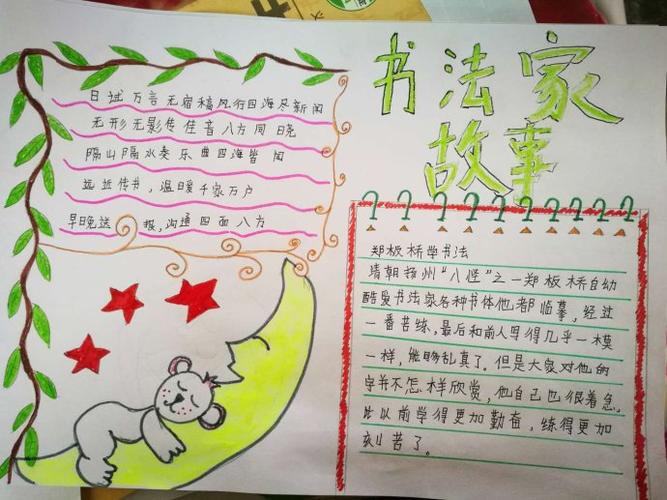 书法家
故事
日试万言无宿稿风行四海尽新闻
无形无影传佳音八方同晓
隔山隔水奏乐曲四海皆闻
远近传书，温暖千家万户
早晚送报，沟通四面八方
郑板桥学书法
清朝扬州“八怪”之一郑板桥自幼
酷爱书法家各种书体他都临摹，经过
一番苦练，最后和前人写得几乎一模
一样，能够乱真了。但是大家对他的
字并不怎样欣赏，他自己也很着急，
比以前学得更加勤奋，练得更加
刻苦了。